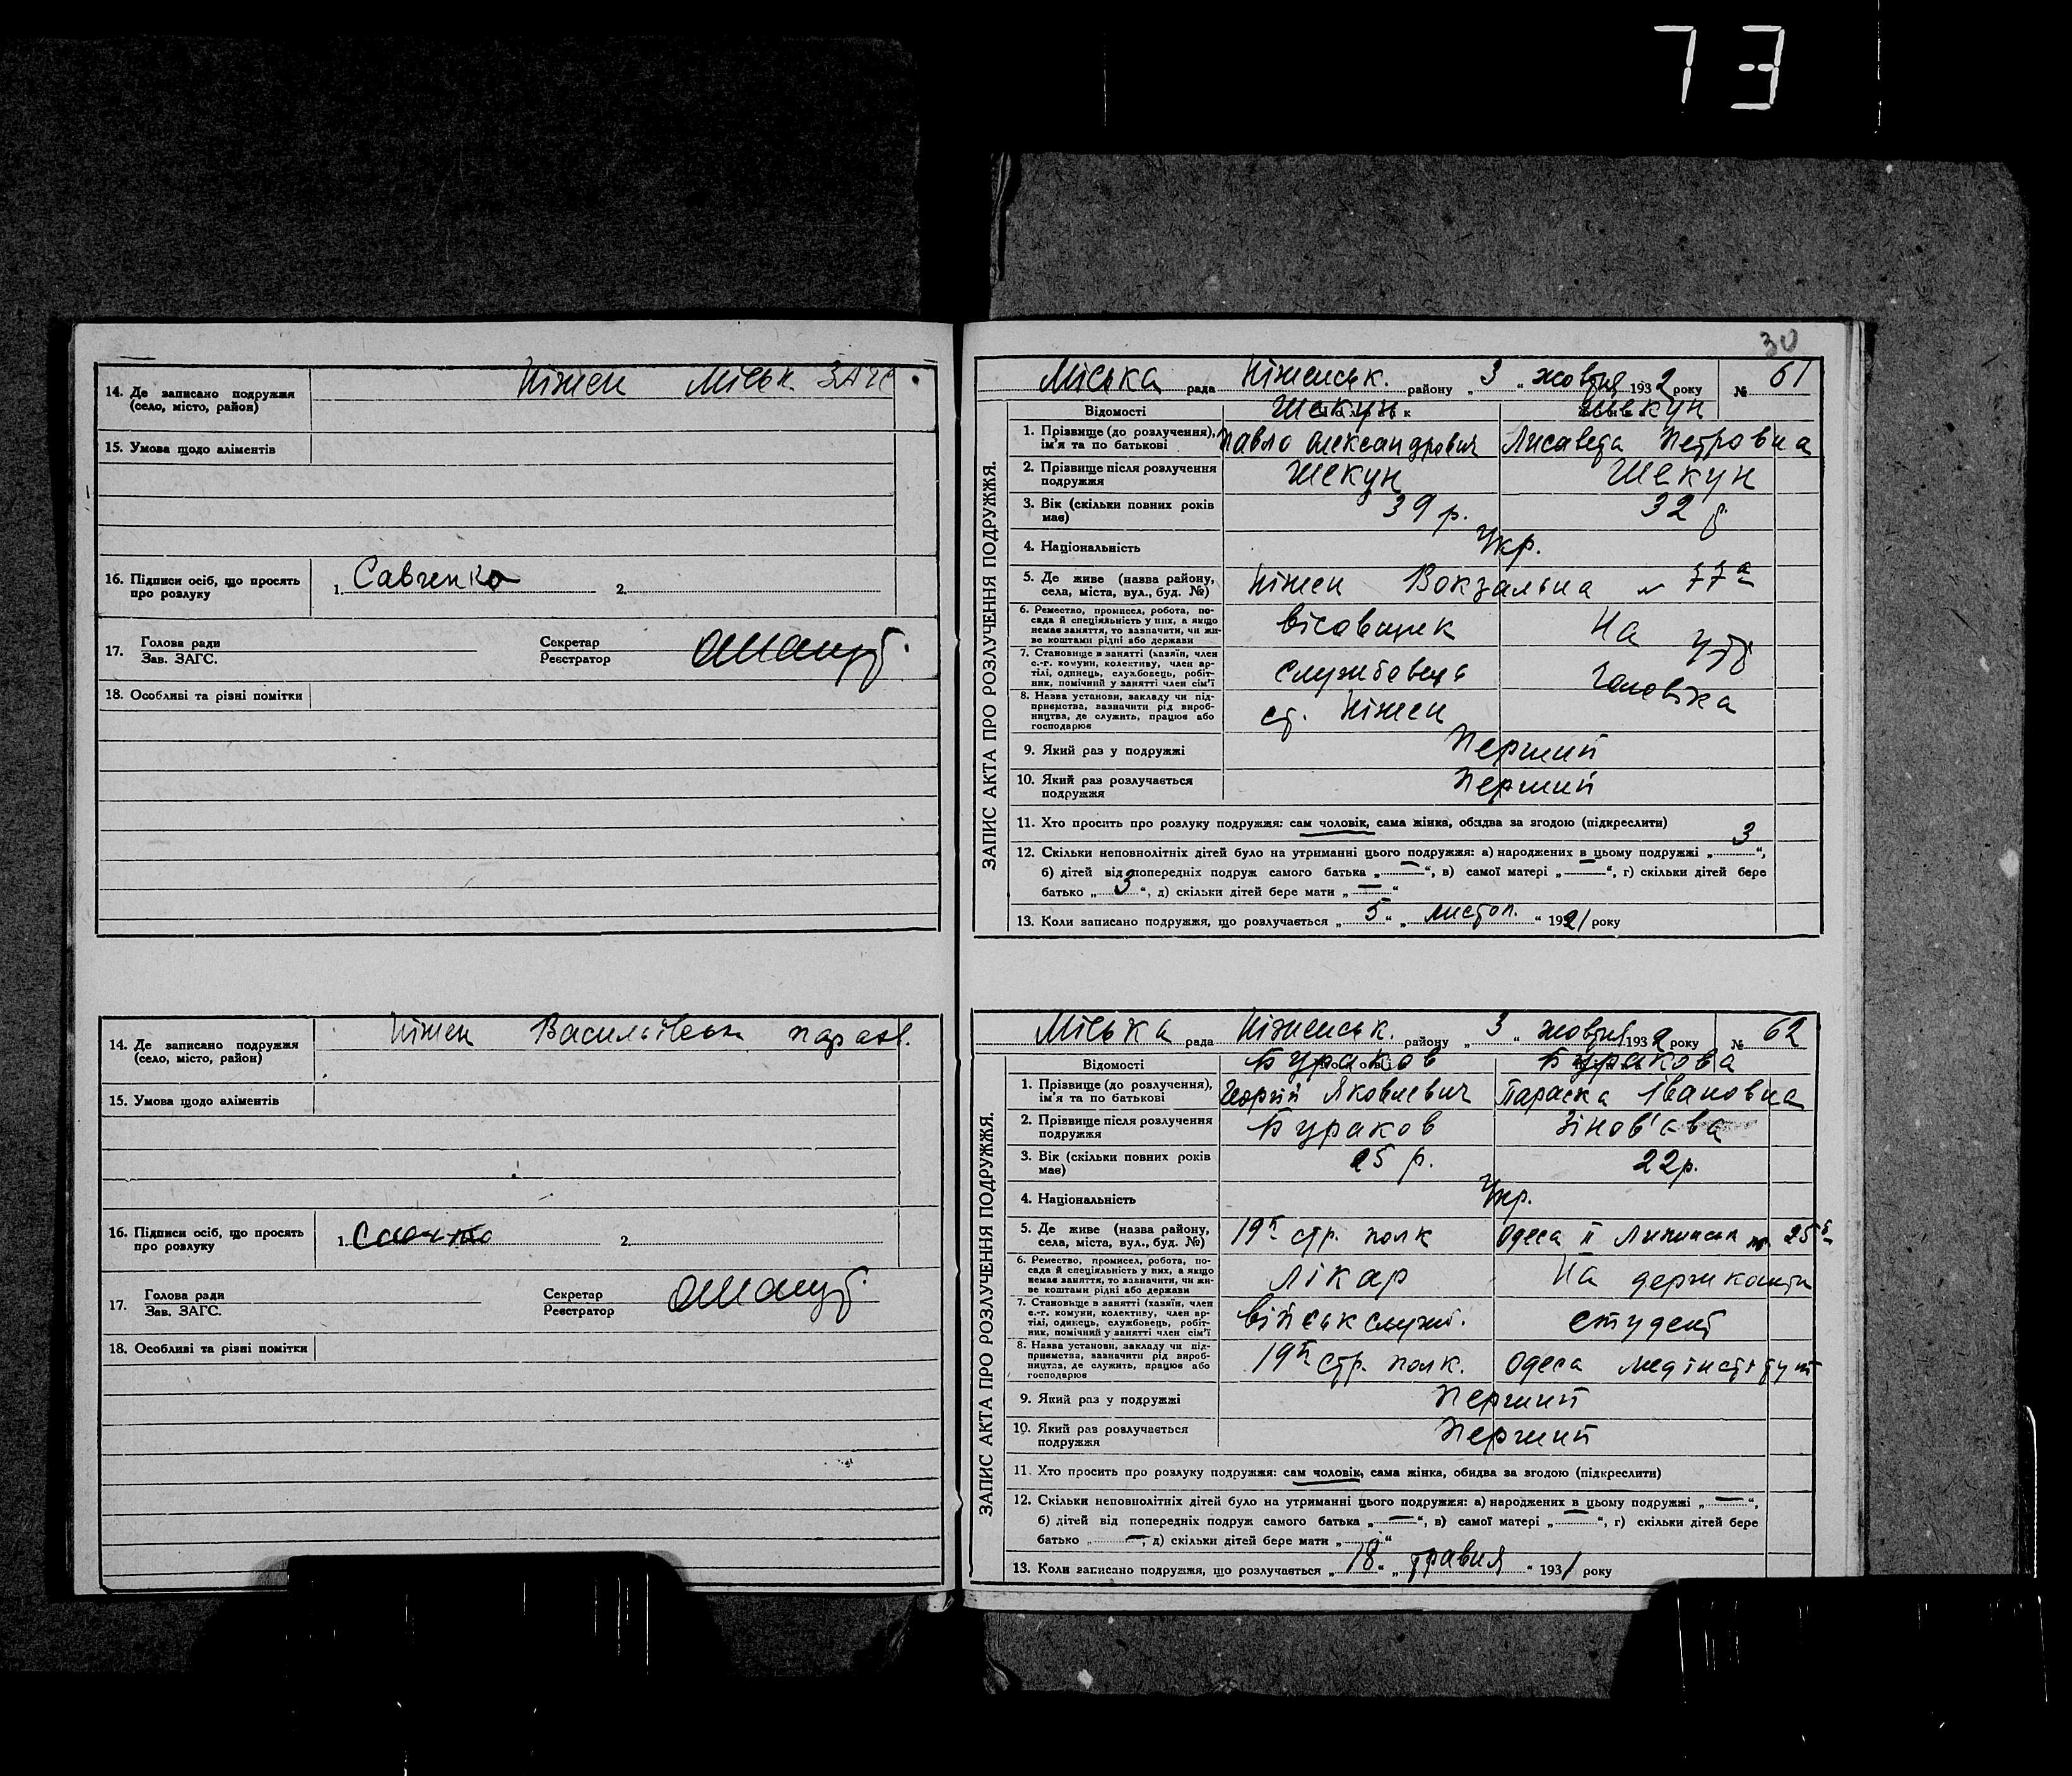 73
14. Де записано подружжя (село, місто, район)
Ніжен Міськ. ЗАГС.
15. Умова щодо аліментів
16. Підписи осіб, що просять про розлуку
1. Савченко 2.
17. Голова ради
Зав. ЗАГС.
Секретар
Реєстратор
18. Особливі та різні помітки
14. Де записано подружжя (село, місто, район)
Ніжен Васильівськ параф.
15. Умова щодо аліментів
16. Підписи осіб, що просять про розлуку
1. 2.
17. Голова ради
Зав. ЗАГС.
Секретар
Реєстратор
18. Особливі та різні помітки
30
ЗАПИС АКТА ПРО РОЗЛУЧЕННЯ ПОДРУЖЖЯ.
Міська рада Ніженськ. району „ 3 “ жовтня 1932 року № 61
Відомості Шекун Шекун
1. Прізвище (до розлучення), ім’я та по батькові
Павло Олександрович Лисавета Петровна
2. Прізвище після розлучення подружжя
Шекун Шекун
3. Вік (скільки повних років має)
39 р. 32 р.
4. Національність
Укр.
5. Де живе (назва району, села, міста, вул., буд. №)
Ніжен Вокзальна № 77а
6. Ремество, промисел, робота, посада й спеціяльність у них, а якщо немає заняття, то зазначити, чи живе коштами рідні або держави
вісовщик На утр
7. Становище в занятті (хазяїн, член с.-г. комуни, колективу, член артілі, одинець, службовець, робітник, помічний у занятті член сім’ї
службовець чоловіка
8. Назва установи, закладу чи підприємства, зазначити рід виробництва, де служить, працює або господарює
ст. Ніжен
9. Який раз у подружжі
Перший
10. Який раз розлучається подружжя
Перший
11. Хто просить про розлуку подружжя: сам чоловік, сама жінка, обидва за згодою (підкреслити)
12. Скільки неповнолітніх дітей було на утриманні цього подружжя: а) народжених в цьому подружжі „ 3 “,
б) дітей від попередніх подруж самого батька „ — “, в) самої матері „ — “, г) скільки дітей бере
батько „ 3 “, д) скільки дітей бере мати „ — “
13. Коли записано подружжя, що розлучається „ 5 “ „ листоп. “ 1921 року
ЗАПИС АКТА ПРО РОЗЛУЧЕННЯ ПОДРУЖЖЯ.
Міська рада Ніженськ. району „ 3 “ жовтня 1932 року № 62
Відомості Бураков Буракова
1. Прізвище (до розлучення), ім’я та по батькові
Георгій Яковлевич Параска Івановна
2. Прізвище після розлучення подружжя
Бураков Зінов'єва
3. Вік (скільки повних років має)
25 р. 22р.
4. Національність
Укр.
5. Де живе (назва району, села, міста, вул., буд. №)
19й стр. полк Одеса II
6. Ремество, промисел, робота, посада й спеціяльність у них, а якщо немає заняття, то зазначити, чи живе коштами рідні або держави
Лікар На держ кошти
7. Становище в занятті (хазяїн, член с.-г. комуни, колективу, член артілі, одинець, службовець, робітник, помічний у занятті член сім’ї
військ служб. студент
8. Назва установи, закладу чи підприємства, зазначити рід виробництва, де служить, працює або господарює
19й стр. полк. Одеса медінститут
9. Який раз у подружжі
Перший
10. Який раз розлучається подружжя
Перший
11. Хто просить про розлуку подружжя: сам чоловік, сама жінка, обидва за згодою (підкреслити)
12. Скільки неповнолітніх дітей було на утриманні цього подружжя: а) народжених в цьому подружжі „ — “,
б) дітей від попередніх подруж самого батька „ — “, в) самої матері „ — “, г) скільки дітей бере
батько „ — “, д) скільки дітей бере мати „ “
13. Коли записано подружжя, що розлучається „ 18 “ „ травня “ 1931 року